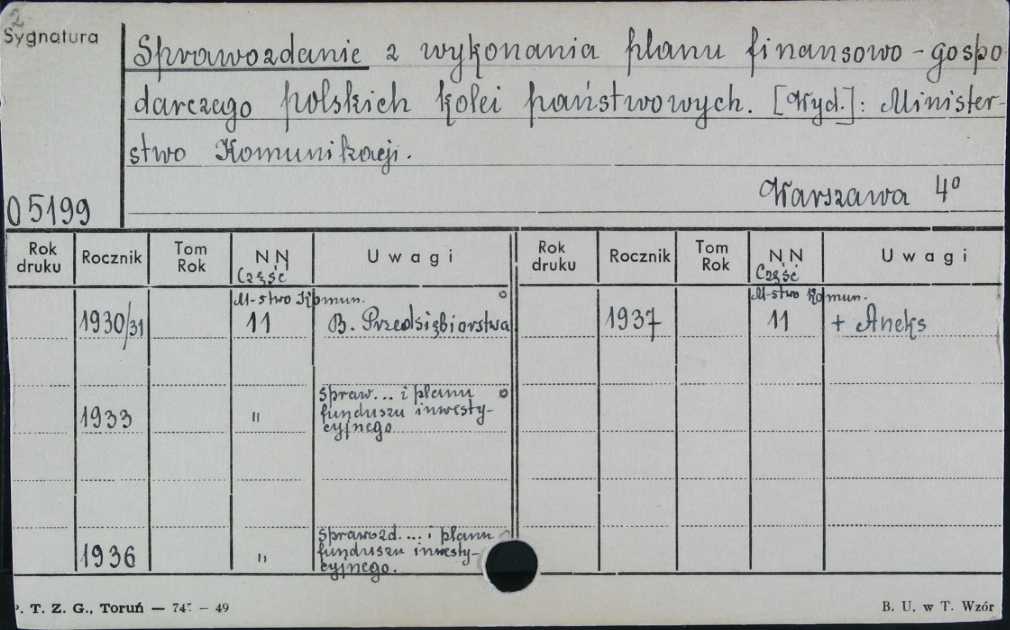 2
Sygnatura
Sprawozdanie z wykonania planu finansowo-gospo
darczego polskich kolei państwowych. [Wyd.]: Minister-
stwo Komunikacji.
Warszawa 4°
05199
Rok druku Rocznik Tom Rok NN Część Uwagi Rok druku Rocznik Tom Rok NN Część Uwagi
M-stwo Komun. M-stwo Komun.
1930/31 11 B. Przedsiębiorstwa 1937 11 + Aneks
spraw... i planu
1933 " funduszu inwesty-
cyjnego
sprawozd.... i planu
1936 " funduszu inwesty-
cyjnego.
. T. Z. G., Toruń — 74 – 49
B. U. w T. Wzór